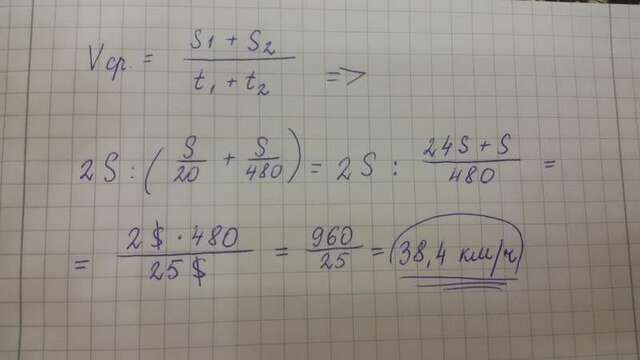 Vср. = (S₁ + S₂)/(t₁ + t₂) =>
2S : (S/20 + S/480) = 2S : (24S + S)/480 =
= (2S · 480)/(25S) = 960/25 = 38,4 км/ч